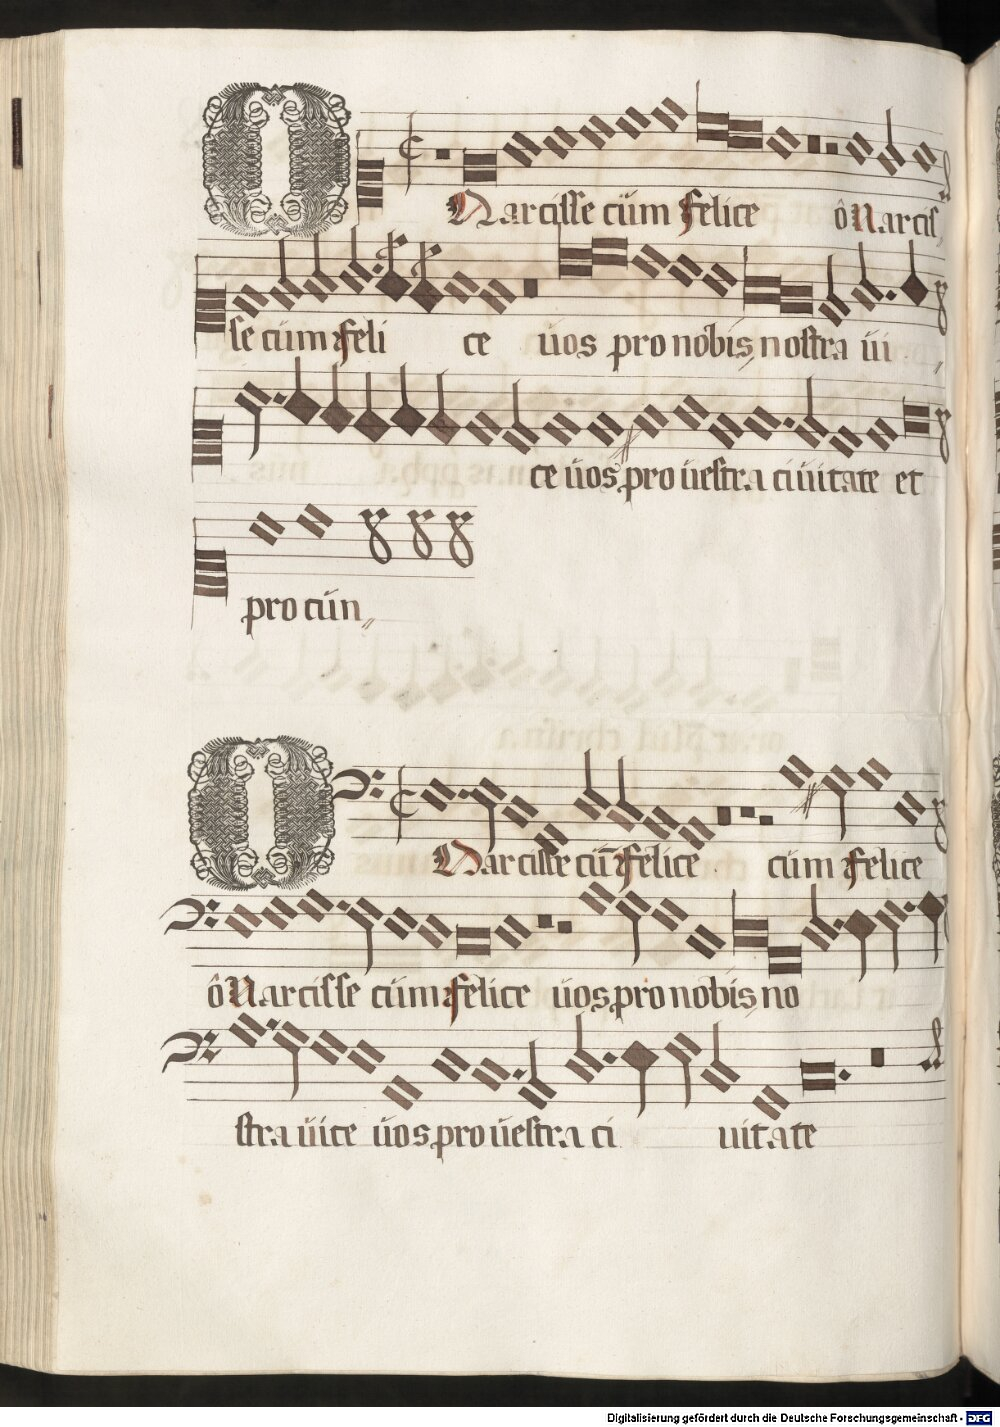 O Narcisse cūm felice ô Narcis„
se cum feli ce ūos pro nobis nostra ūi „
ce ūos pro ūestra ciūitate et
pro cūn„
O Narcisse cū felice cūm felice
ô Narcisse cūm felice ūos pro nobis no
stra ūice ūos pro ūestra ci uitate
Digitalisierung gefördert durch die Deutsche Forschungsgemeinschaft - DFG